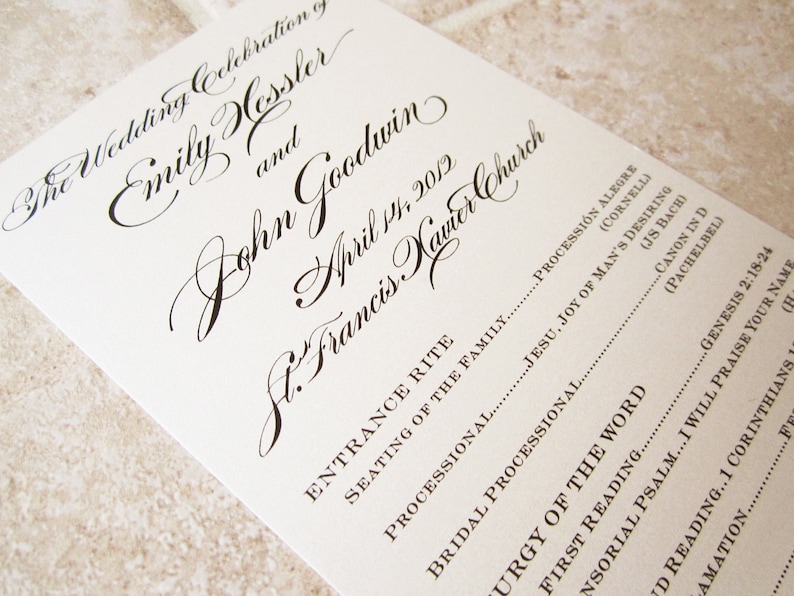 The Wedding Celebration of
Emily Hessler
and
John Goodwin
April 14, 2012
St. Francis Xavier Church
ENTRANCE RITE
SEATING OF THE FAMILY........PROCESSIÓN ALEGRE
(CORNELL)
PROCESSIONAL..........JESU, JOY OF MAN'S DESIRING
(JS BACH)
BRIDAL PROCESSIONAL..............................CANON IN D
(PACHELBEL)
URGY OF THE WORD
FIRST READING..............................GENESIS 2:18-24
NSORIAL PSALM...I WILL PRAISE YOUR NAME
(H
ND READING..1 CORINTHIANS 1
LAMATION